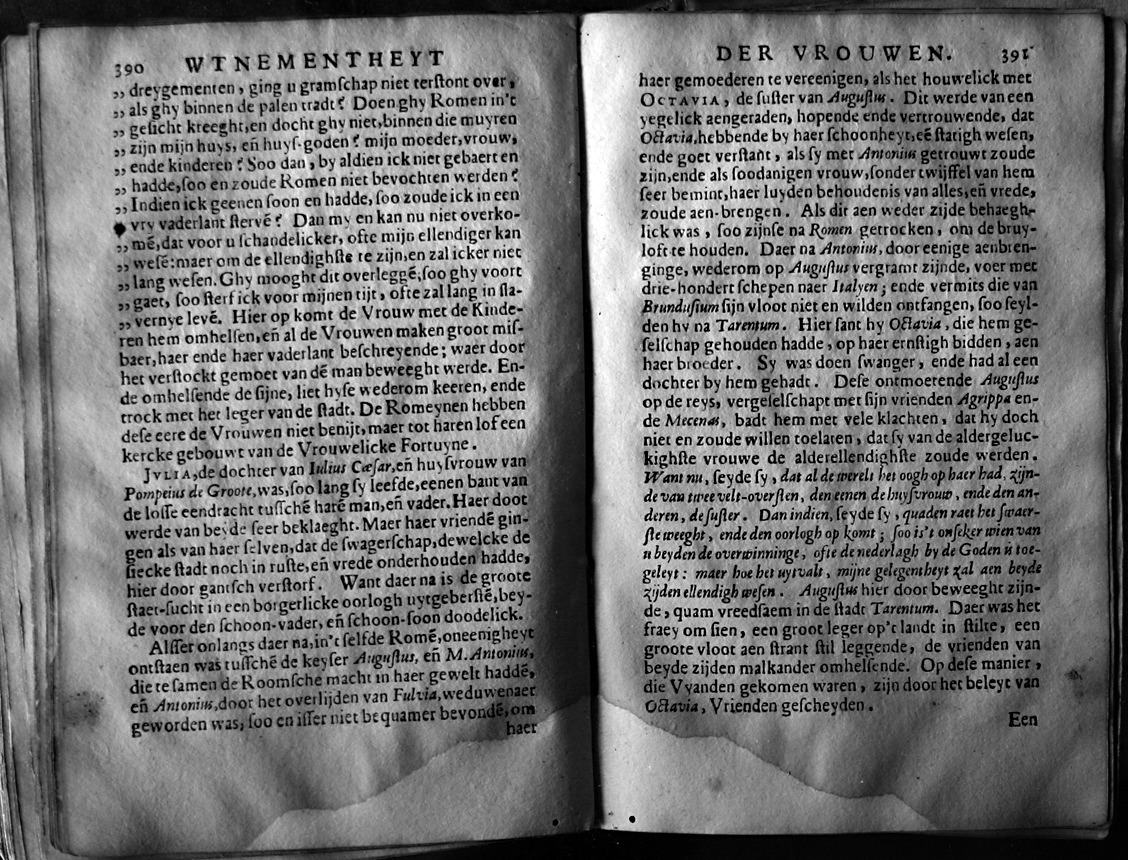 390 WTNEMENTHEYT
„ dreygementen, ging u gramſchap niet terſtont over,
„ als ghy binnen de palen tradt? Doen ghy Romen in't
„ geſicht kreeght, en docht ghy niet, binnen die muyren
„ zijn mijn huys, eñ huyſ-goden? mijn moeder, vrouw,
„ ende kinderen? Soo dan, by aldien ick niet gebaert en
„ hadde, ſoo en zoude Romen niet bevochten werden?
„ Indien ick geenen ſoon en hadde, ſoo zoude ick in een
vry vaderlant ſtervē? Dan my en kan nu niet overko-
„ mē, dat voor u ſchandelicker, ofte mijn ellendiger kan
„ weſē: maer om de ellendighſte te zijn, en zal icker niet
„ lang weſen. Ghy mooght dit overleggē, ſoo ghy voort
„ gaet, ſoo ſterf ick voor mijnen tijt, ofte zal lang in ſla-
„ vernye levē. Hier op komt de Vrouw met de Kinde-
ren hem omhelſen, eñ al de Vrouwen maken groot miſ-
baer, haer ende haer vaderlant beſchreyende; waer door
het verſtockt gemoet van dē man beweeght werde. En-
de omhelſende de ſijne, liet hyſe wederom keeren, ende
trock met het leger van de ſtadt. De Romeynen hebben
deſe eere de Vrouwen niet benijt, maer tot haren lof een
kercke gebouwt van de Vrouwelicke Fortuyne.
JVLIA, de dochter van Iulius Cæſar, eñ huyſvrouw van
Pompeius de Groote, was, ſoo lang ſy leefde, eenen bant van
de loſſe eendracht tuſſchē harē man, eñ vader. Haer doot
werde van beyde ſeer beklaeght. Maer haer vriendē gin-
gen als van haer ſelven, dat de ſwagerſchap, dewelcke de
ſiecke ſtadt noch in ruſte, eñ vrede onderhouden hadde,
hier door gantſch verſtorf. Want daer na is de groote
ſtaet-ſucht in een borgerlicke oorlogh uytgeberſtē, bey-
de voor den ſchoon-vader, eñ ſchoon-ſoon doodelick.
Alſſer onlangs daer na, in't ſelfde Romē, oneenigheyt
ontſtaen was tuſſchē de keyſer Auguſtus, eñ M. Antonius,
die te ſamen de Roomſche macht in haer gewelt haddē,
eñ Antonius, door het overlijden van Fulvia, weduwenaer
geworden was; ſoo en iſſer niet bequamer bevondē, om
haer
DER VROUWEN. 391
haer gemoederen te vereenigen, als het houwelick met
OCTAVIA, de ſuſter van Auguſtus. Dit werde van een
yegelick aengeraden, hopende ende vertrouwende, dat
Octavia, hebbende by haer ſchoonheyt, eē ſtatigh weſen,
ende goet verſtant, als ſy met Antonius getrouwt zoude
zijn, ende als ſoodanigen vrouw, ſonder twijffel van hem
ſeer bemint, haer luyden behoudenis van alles, eñ vrede,
zoude aen-brengen. Als dit aen weder zijde behaegh-
lick was, ſoo zijnſe na Romen getrocken, om de bruy-
loft te houden. Daer na Antonius, door eenige aenbren-
ginge, wederom op Auguſtus vergramt zijnde, voer met
drie-hondert ſchepen naer Italyen; ende vermits die van
Brunduſium ſijn vloot niet en wilden ontfangen, ſoo ſeyl-
den hy na Tarentum. Hier ſant hy Octavia, die hem ge-
ſelſchap gehouden hadde, op haer ernſtigh bidden, aen
haer broeder. Sy was doen ſwanger, ende had al een
dochter by hem gehadt. Deſe ontmoetende Auguſtus
op de reys, vergeſelſchapt met ſijn vrienden Agrippa en-
de Mecenas, badt hem met vele klachten, dat hy doch
niet en zoude willen toelaten, dat ſy van de aldergeluc-
kighſte vrouwe de alderellendighſte zoude werden.
Want nu, ſeyde ſy, dat al de werelt het oogh op haer had, zijn-
de van twee velt-overſten, den eenen de huyſvrouw, ende den an-
deren, de ſuſter. Dan indien, ſeyde ſy, quaden raet het ſwaer-
ſte weeght, ende den oorlogh op komt; ſoo is't onſeker wien van
u beyden de overwinninge, ofte de nederlagh by de Goden is toe-
geleyt: maer hoe het uytvalt, mijne gelegentheyt zal aen beyde
zijden ellendigh weſen. Auguſtus hier door beweeght zijn-
de, quam vreedſaem in de ſtadt Tarentum. Daer was het
fraey om ſien, een groot leger op't landt in ſtilte, een
groote vloot aen ſtrant ſtil leggende, de vrienden van
beyde zijden malkander omhelſende. Op deſe manier,
die Vyanden gekomen waren, zijn door het beleyt van
Octavia, Vrienden geſcheyden.
Een